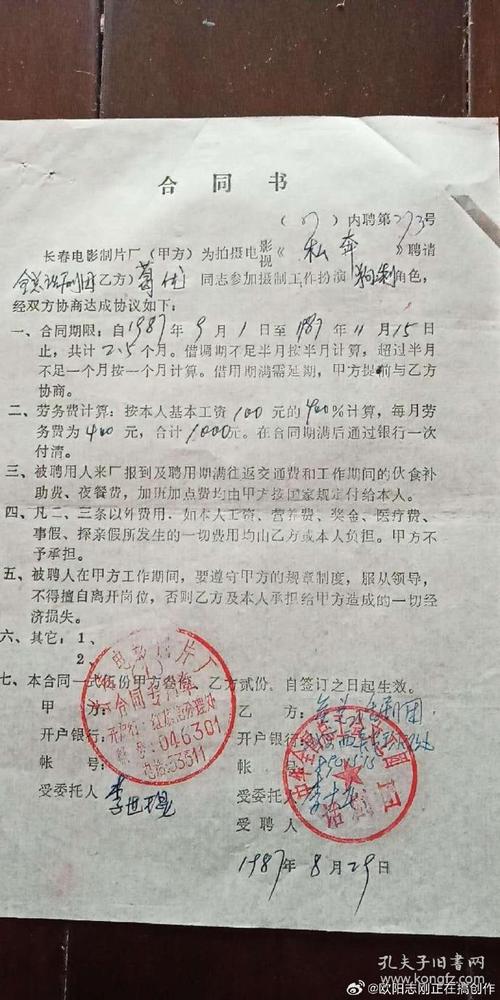 合同书
(87)内聘第273号
长春电影制片厂(甲方)为拍摄电影视《私奔》聘请
全总话剧团(乙方)葛优同志参加摄制工作扮演角色,
经双方协商达成协议如下:
一、合同期限:自1987年9月1日至1987年11月15日
止,共计2.5个月。借调期不足半月按半月计算,超过半月
不足一个月按一个月计算。借用期满需延期,甲方提前与乙方
协商。
二、劳务费计算:按本人基本工资100元的400%计算,每月劳
务费为400元,合计1000元。在合同期满后通过银行一次
付清。
三、被聘用人来厂报到及聘用期满往返交通费和工作期间的伙食补
助费、夜餐费,加班加点费均由甲方按国家规定付给本人。
四、凡二、三条以外费用,如本人工资、营养费、奖金、医疗费、
事假、探亲假所发生的一切费用均由乙方或本人负担。甲方不
予承担。
五、被聘人在甲方工作期间,要遵守甲方的规章制度,服从领导,
不得擅自离开岗位,否则乙方及本人承担给甲方造成的一切经
济损失。
六、其它:1、
2、
七、本合同一式伍份甲方叁份,乙方贰份,自签订之日起生效。
甲方: 乙方:全总话剧团
开户银行: 开户银行:
帐号: 帐号:
受委托人: 受委托人:
受聘人
1987年8月29日
长春电影制片厂
合同专用章
046301
电话:53311
话剧团
孔夫子旧书网
www.kongfz.com
@欧阳志刚正在搞创作